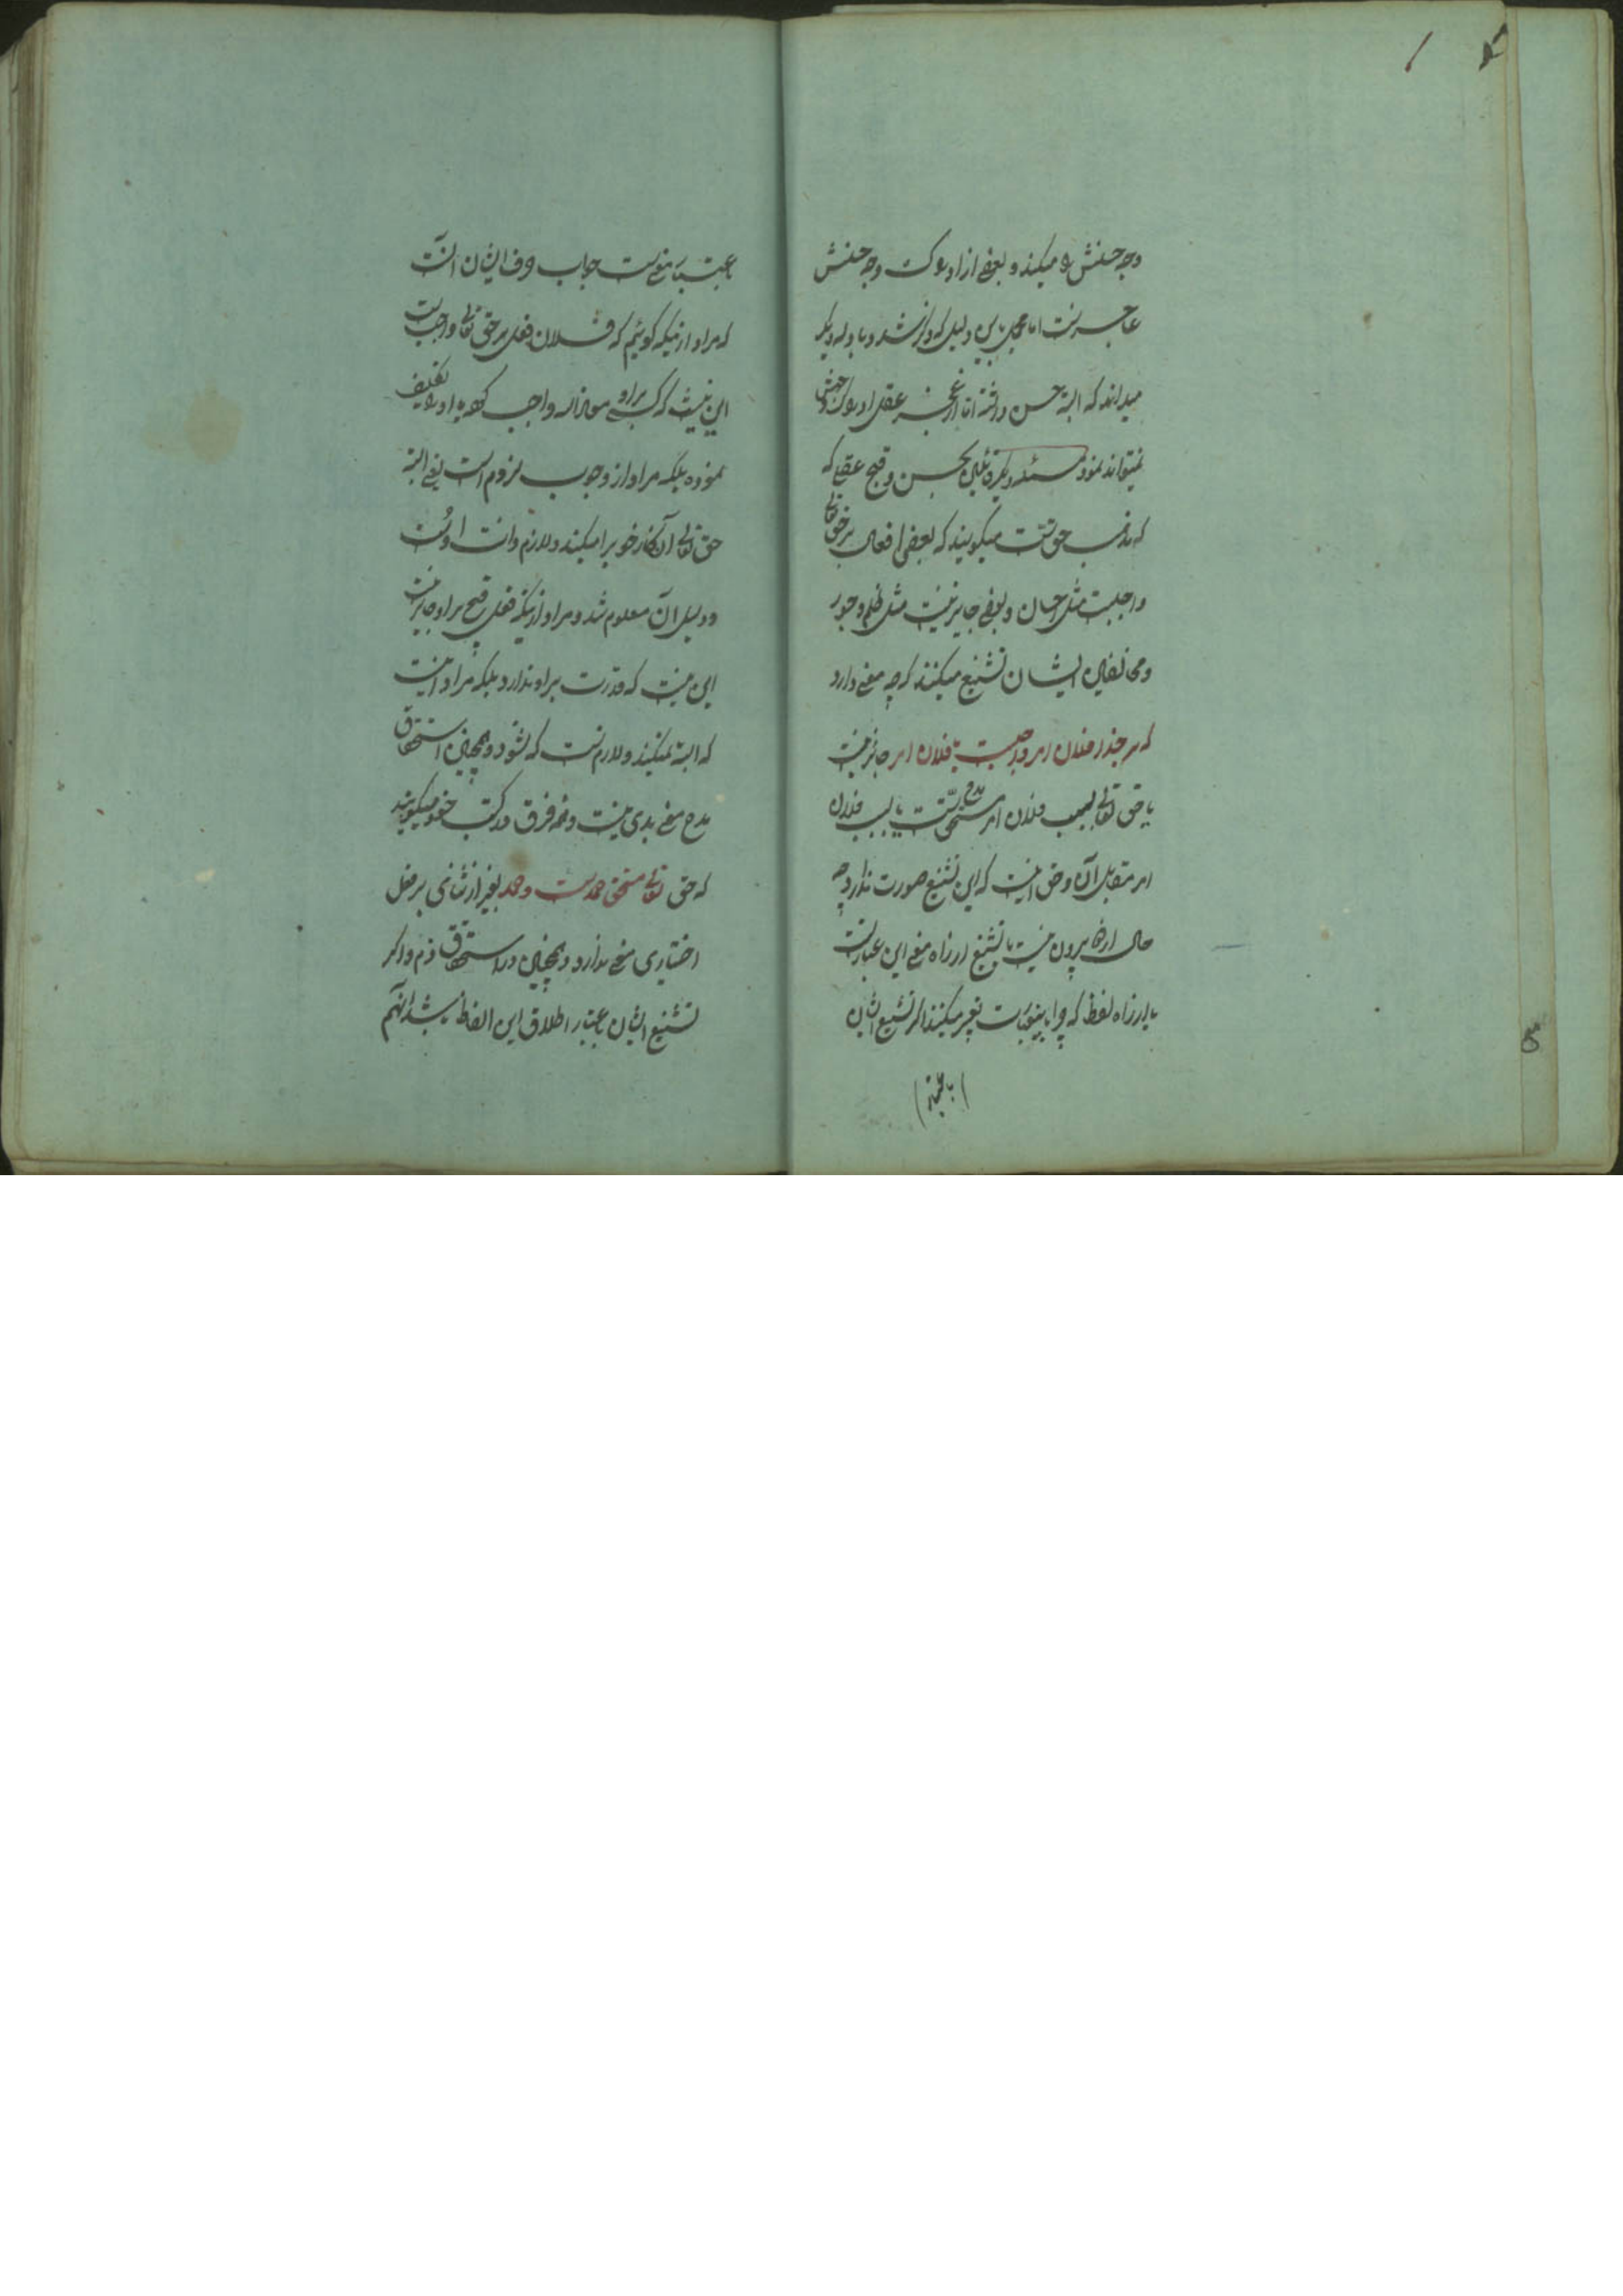 وجه حسنش را میکند و بعضی از ادراک وجه حسنش
عاجز است اما مجمل باین دلیل که ذکر شد و بادله دیگر
میداند که البته حسن داشته اما از عجز عقل ادراک جهتش
نمیتواند نمود مسئله دیگر قائلین بحسن و قبح عقلی که
که مذهب حق است میگویند که بعضی افعال بر حق تعالی
واجبست مثل احسان و بعضی جایز نیست مثل ظلم و جور
و مخالفین ایشان تشنیع میکنند که چه معنی دارد
که بر خدا فلان امر واجبست یا فلان امر جایز نیست
یا حق تعالی بسبب فلان امر مستحق مدح است یا بسبب فلان
امر مقابل آن و حق اینست که این تشنیع صورت ندارد چه
حال از این بیرون نیست یا تشنیع از راه معنی این عبارتست
یا از راه لفظ که چرا باین عبارت تعبیر میکنند اگر تشنیع ایشان
باعتبار
باعتبار معنی است جواب حرف ایشان آنست
که مراد از اینکه گوئیم که فلان فعل بر حق تعالی واجبست
این نیست که کسی بر او معاذالله واجب کرده یا او را تکلیف
نموده بلکه مراد از وجوب لزوم است یعنی البته
حق تعالی آن کار خوب را میکند و لازم ذات اوست
و دلیل آن معلوم شد و مراد از اینکه فعل قبیح بر او جایز نیست
این نیست که قدرت بر او ندارد بلکه مراد اینست
که البته نمیکند و لازم است که نشود و همچنین استحقاق
مدح معنی بدی نیست و همه فرق در کتب خود میگویند
که حق تعالی مستحق حمد است و حمد بغیر از ثنای بر فعل
اختیاری معنی ندارد و همچنین در استحقاق ذم و اگر
تشنیع ایشان باعتبار اطلاق این الفاظ باشد آنهم